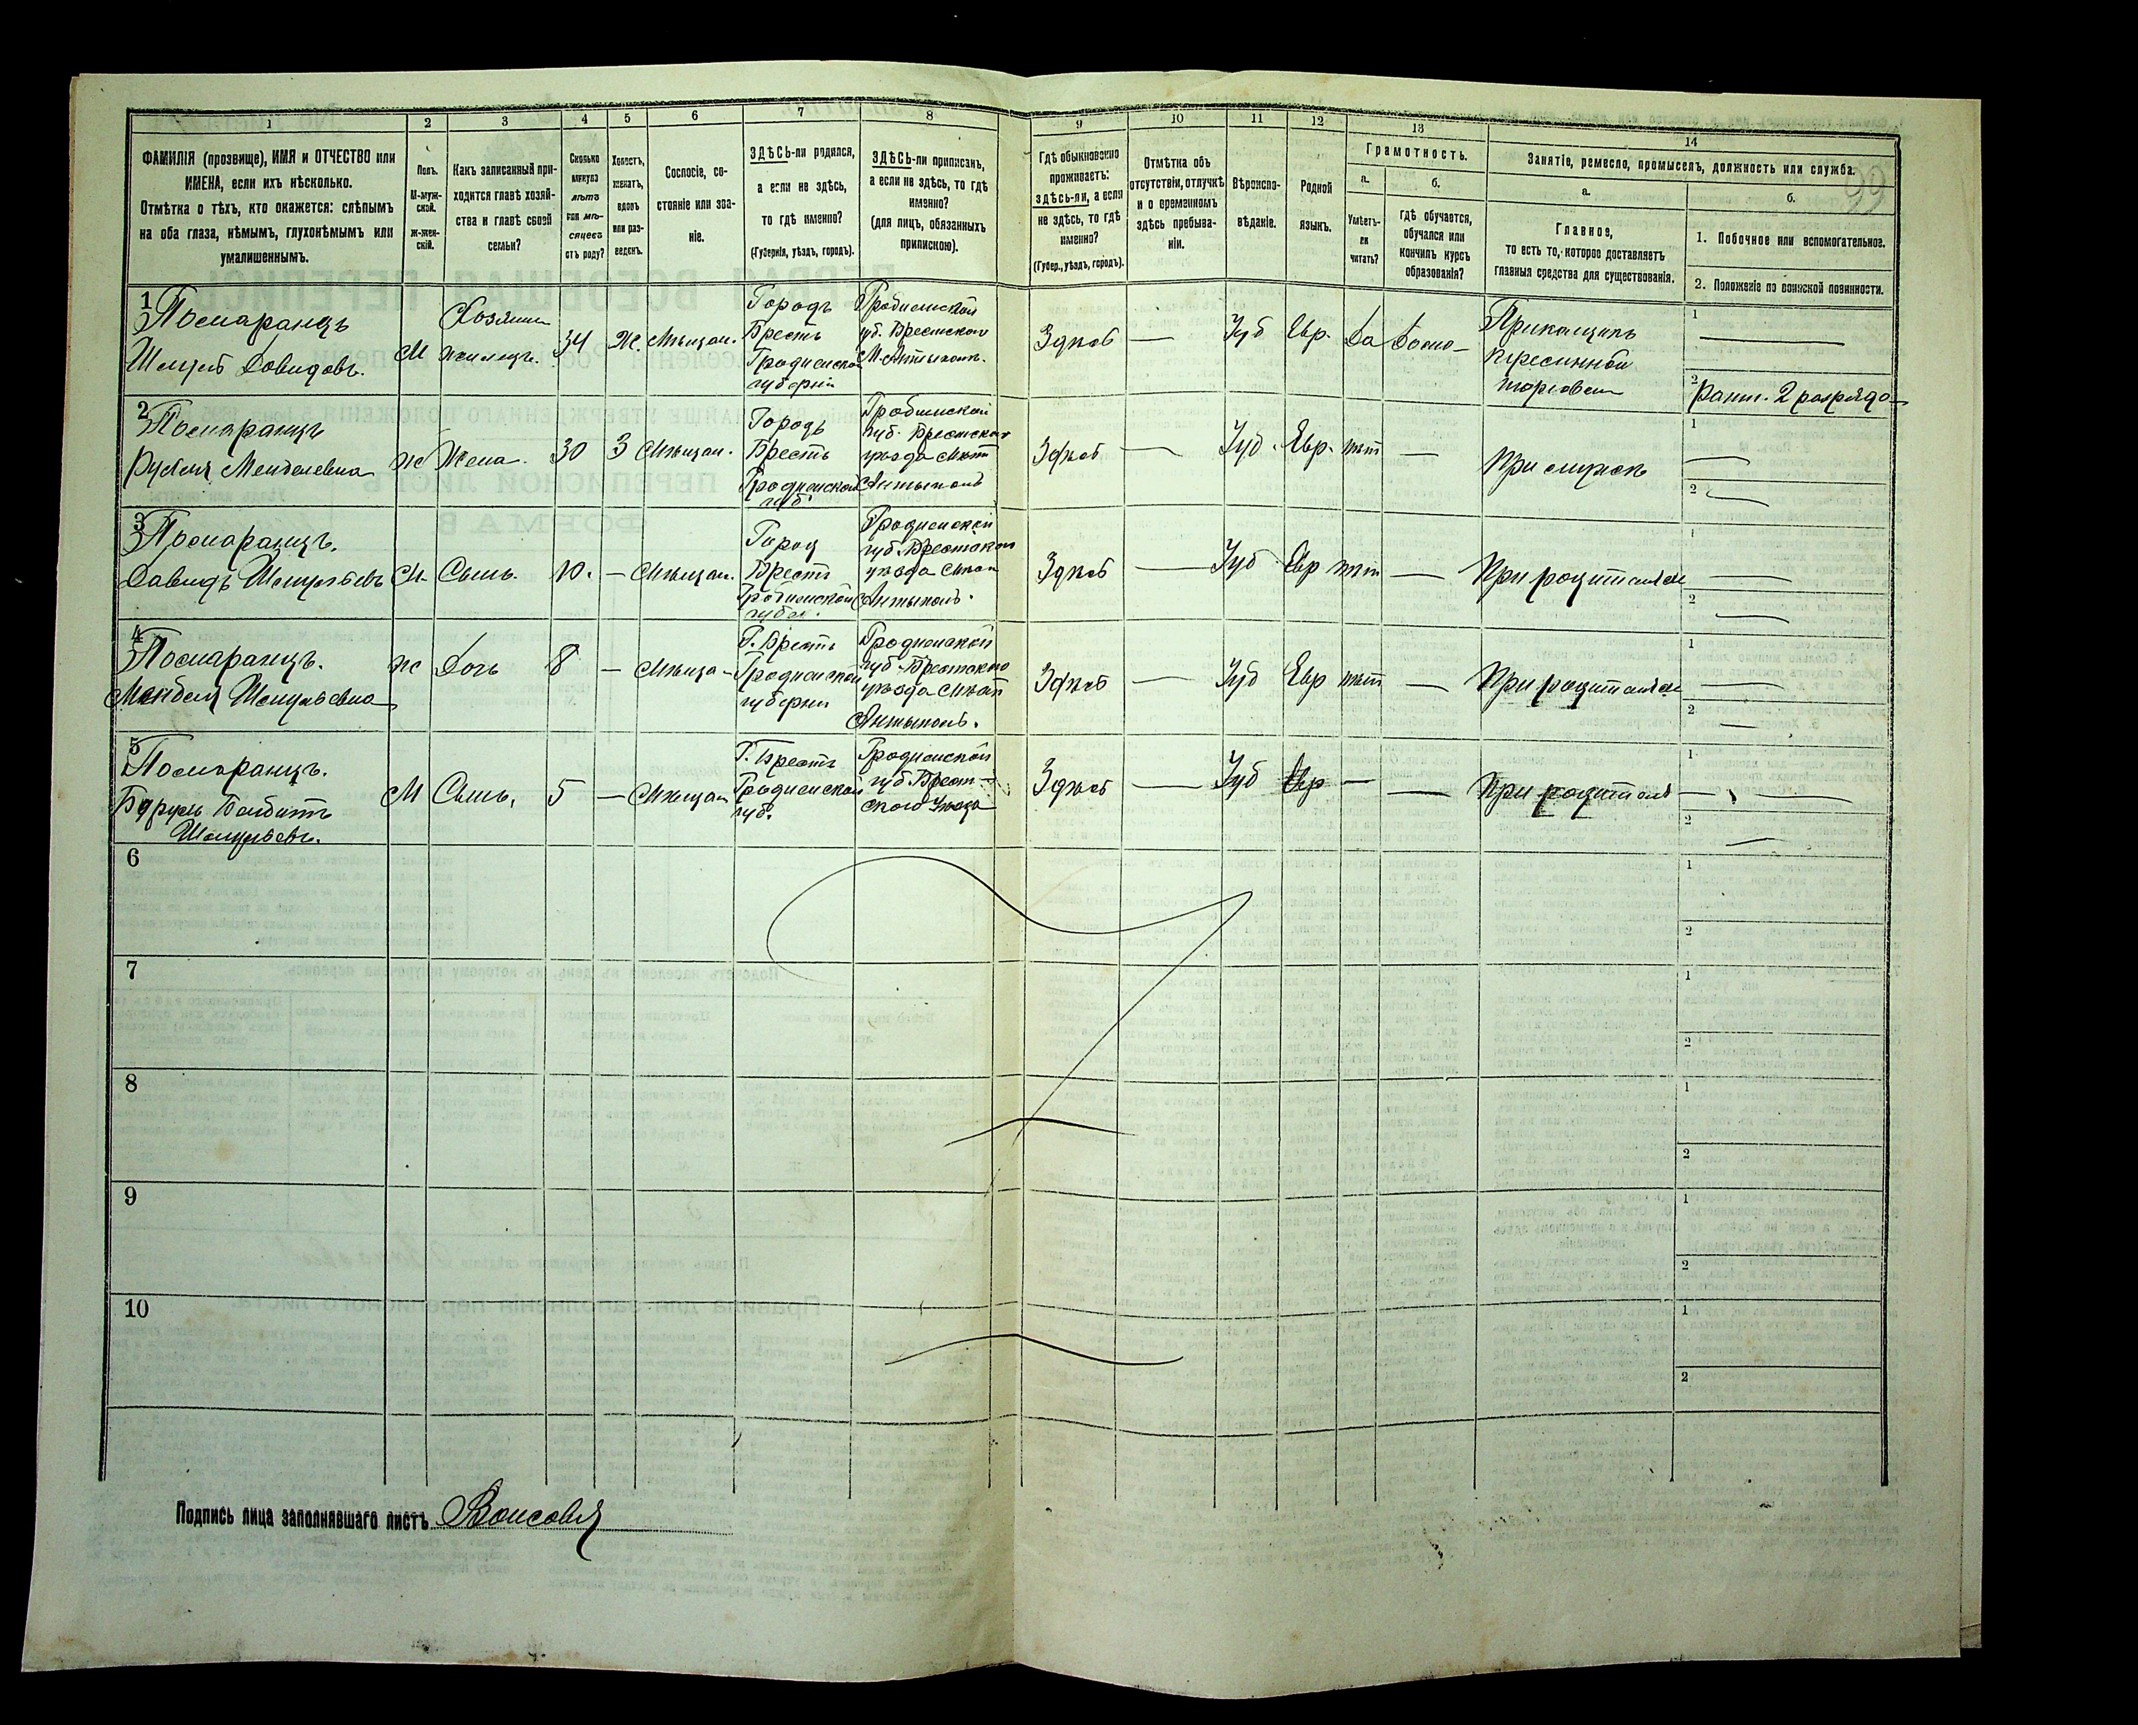 1
2
3
4
5
6
7
8
9
10
11
12
13
14
ФАМИЛІЯ (прозвище), ИМЯ и ОТЧЕСТВО или
ИМЕНА, если ихъ нѣсколько.
Отмѣтка о тѣхъ, кто окажется: слѣпымъ
на оба глаза, нѣмымъ, глухонѣмымъ или
умалишеннымъ.
Полъ.
М-муж-
ской.
Ж-жен-
скій.
Какъ записанный при-
ходится главѣ хозяй-
ства и главѣ своей
семьи?
Сколько
минуло
лѣтъ
или мѣ-
сяцевъ
отъ роду?
Холостъ,
женатъ,
вдовъ
или раз-
веденъ.
Сословіе, со-
стояніе или зва-
ніе.
ЗДѢСЬ-ли родился,
а если не здѣсь,
то гдѣ именно?
(Губернія, уѣздъ, городъ).
ЗДѢСЬ-ли приписанъ,
а если не здѣсь, то гдѣ
именно?
(для лицъ, обязанныхъ
припискою).
Гдѣ обыкновенно
проживаетъ:
здѣсь-ли, а если
не здѣсь, то гдѣ
именно?
(Губер., уѣздъ, городъ).
Отмѣтка объ
отсутствіи, отлучкѣ
и о временномъ
здѣсь пребыва-
ніи.
Вѣроиспо-
вѣданіе.
Родной
языкъ.
Грамотность.
а.
б.
Умѣетъ-
ли
читать?
гдѣ обучается,
обучался или
кончилъ курсъ
образованія?
Занятіе, ремесло, промыселъ, должность или служба.
99
а.
б.
Главное,
то есть то, которое доставляетъ
главныя средства для существованія.
1. Побочное или вспомогательное.
2. Положеніе по воинской повинности.
1
Помаранцъ
Довидовъ.
М
Хозяинъ
34
Ж.
Мѣщан.
Городъ
Брестъ
Гродненской
губерніи
Гродненской
уб. Брестского
М. Антыполь.
Здѣсь
—
Іуд
Евр.
Да
Прикащикъ
торговли
1
2
Ратн. 2 разряда
2
Помаранцъ
Менделевна
Ж
Жена.
30
З
Мѣщан.
Городъ
Брестъ
Гродненской
губ.
Гродненской
губ. Брестского
уѣзда Мѣст
Антыполь
Здѣсь
—
Іуд.
Евр.
нѣт
—
При мужѣ
1
2
3
Помаранцъ.
Давидъ
М.
Сынъ.
10.
—
Мѣщан.
Город
Брестъ
Гродненской
губер.
Гродненской
губ. Брестского
уѣзда Мѣст
Антыполь.
Здѣсь
—
Іуд
Евр
нѣт
—
При родителях
1
2
4
Помаранцъ.
Ж
Дочь
8
—
Мѣща-
Г. Брестъ
Гродненской
губерніи
Гродненской
губ. Брестского
уѣзда Мѣст
Антыполь.
Здѣсь
—
Іуд
Евр
нѣт
—
При родителях
1
2
5
Помаранцъ.
М
Сынъ.
5
—
Мѣщан
Г. Брестъ
Гродненской
губ.
Гродненской
губ Брест-
ского Уѣзда
Здѣсь
—
Іуд
Евр
—
—
При родителях
1
2
6
1
2
7
1
2
8
1
2
9
1
2
10
1
2
Подпись лица заполнявшаго листъ